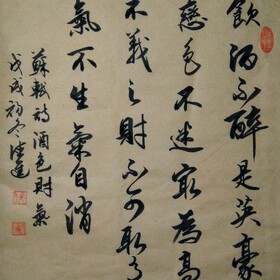 飲酒不醉是英豪
戀色不迷最為高
不義之財不可取
氣不生氣自消
蘇軾詩酒色財氣
戊戌初冬